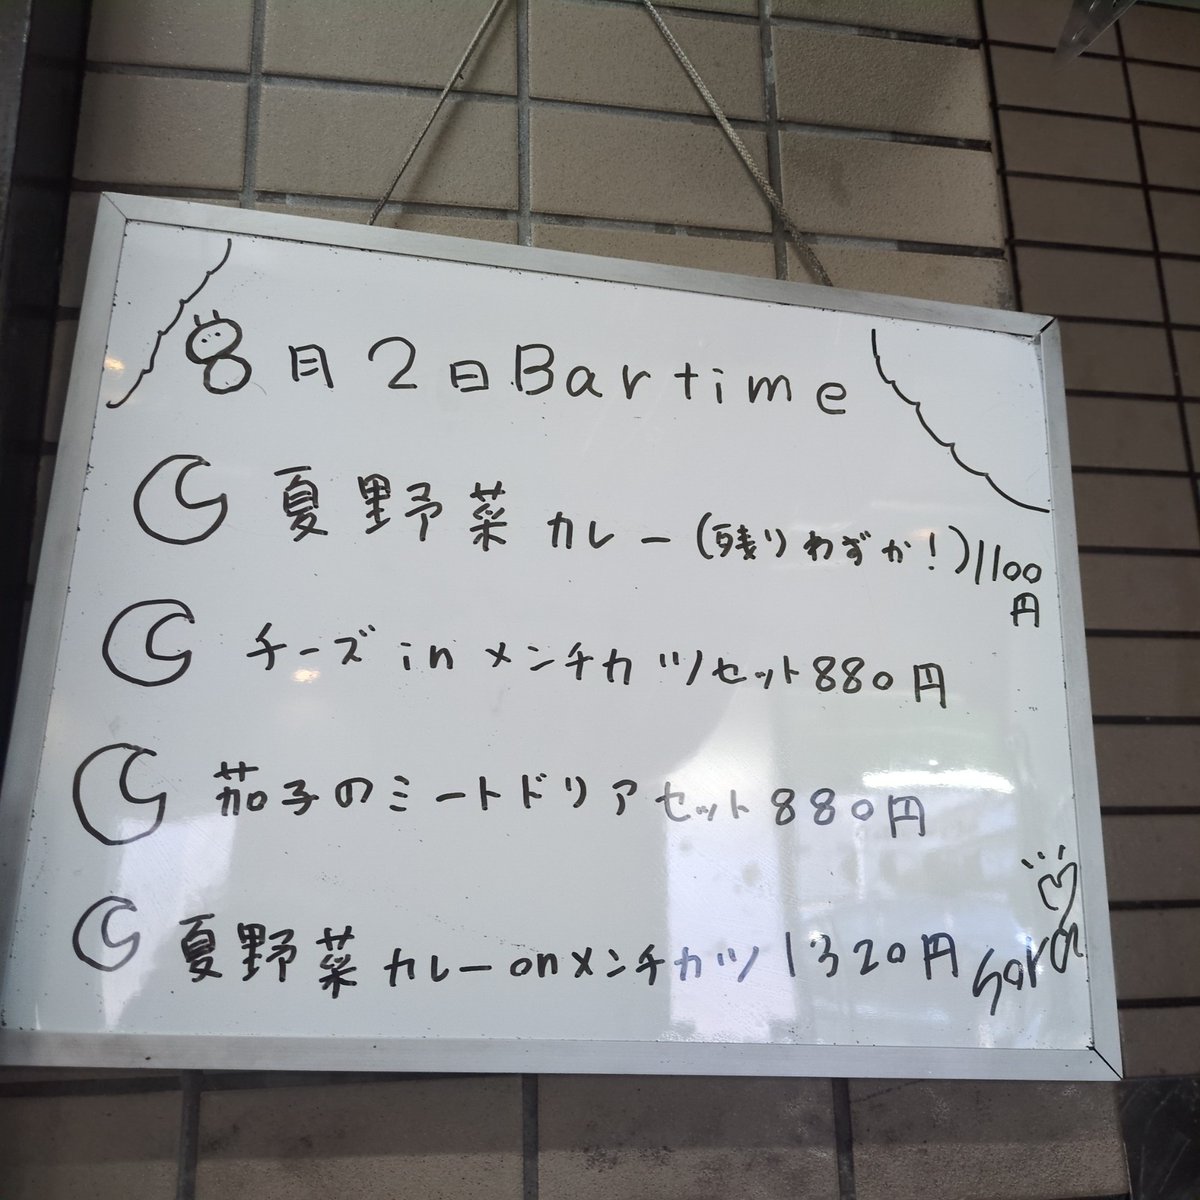 8月2日Bartime
夏野菜カレー(残りわずか!)1100円
チーズinメンチカツセット880円
茄子のミートドリアセット880円
夏野菜カレーonメンチカツ1320円